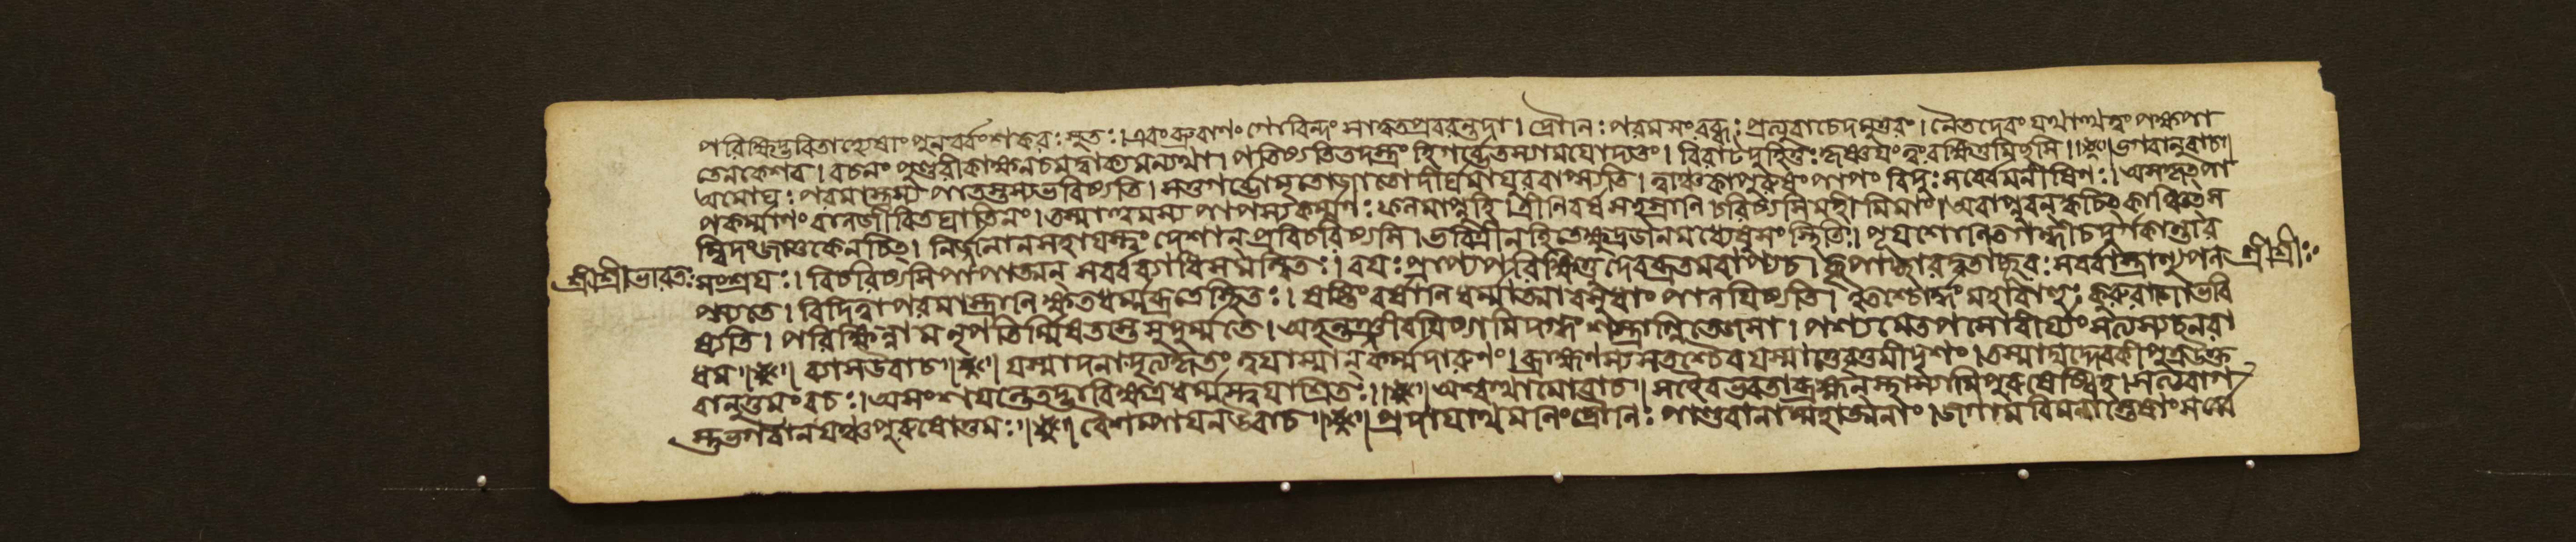 পরিক্ষিদ্ভবিতাহ্যেষাং পুনর্ব্বংশকরঃ সুতঃ। এবং ব্রুবাণং গোবিন্দং সাত্বতপ্রবরন্তদা। দ্রৌনিঃ পরমসংরব্ধঃ প্রত্যুবাচেদমুত্তরং। নৈতদেবং যথাত্থত্বং পক্ষপা
তেনকেশব। বচনং পুণ্ডরীকাক্ষনচমদ্বাক্যমন্যথা। পতিষ্যতিতদস্ত্রং হিগর্ব্ভেতস্যাময়োদ্যতং। বিরাটদুহিতুঃ কৃষ্ণযংত্বংরক্ষিতুমিছসি।।ভগবানুবাচ।
অমোঘঃ পরমাস্ত্রস্য পাতস্তস্যভবিষ্যতি। সতুগর্ব্ভোমৃতোজাতোদীর্ঘমায়ুরবাপ্স্যতি। ত্বাঞ্চকাপুরুষং পাপং বিদুঃ সর্ব্বেমনীষিণঃ। অসকৃৎপা
পকর্ম্মাণং বালজীবিতঘাতিনং। তস্মাত্ত্বমস্য পাপস্যকর্ম্মণঃ ফলমাপ্নুহি। ত্রীনিবর্ষসহস্রানি চরিষ্যসিমহীমিমাং। অপ্রাপ্নুবন্ক্বচিৎকাঞ্চিত্
সম্বিদংজাতুকেনচিৎ। নির্জ্জনানসহায়স্ত্বং দেশান্প্রবিচরিষ্যসি। ভবিত্রীনহিতেক্ষুদ্রজনমধ্যেষুসংস্থিতিঃ। পূয়শোনিতগন্ধীচদুর্গকান্তার
শ্রীশ্রীভারতঃ সংশ্রয়ঃ। বিচরিষ্যসিপাপাত্মন্ সর্ব্বব্যাধিসমন্বিতঃ। বয়ঃপ্রাপ্যপরিক্ষিত্তুদেবব্রতমবাপ্যচ। কৃপাচ্ছারদ্বতাচ্ছূরঃ সর্ব্বাস্ত্রাণ্যুপল শ্রীশ্রীঃ
প্স্যতে। বিদিত্বাপরমাস্ত্রানি ক্ষত্রধর্ম্মব্রতেস্থিতঃ। ষষ্টিং বর্ষানিধর্ম্মাত্মাবসুধাং পালয়িষ্যতি। ইতশ্চোর্দ্ধং মহাবাহুঃ কুরুরাজাভবি
ষ্যতি। পরিক্ষিন্নাম নৃপতির্ম্মিষতস্তেসুদুর্ম্মতে। অহন্তঞ্জীবয়িষ্যামিদগ্ধং শস্ত্রাগ্নিতেজসা। পশ্যমেতপসোবীর্য্যং সত্যস্যচনরা
ধম।। ব্যাসউবাচ।। যস্মাদনাদৃত্যকৃতং ত্বয়াস্মান্কর্ম্মদারুণং। ব্রাহ্মণস্যসতশ্চৈবযস্মাত্তেবৃত্তমীদৃশং। তস্মাদ্যদ্দেবকীপুত্রউক্ত
বানুত্তমংবচঃ। অসংশয়ন্তেতদ্ভাবিক্ষত্রধর্ম্মস্ত্বয়াশ্রিতঃ।। অশ্বত্থামোবাচ।। সহৈবভবতাব্রহ্মন্স্থাস্যামিপুরুষেষ্বিহ। সত্যবাগ
স্তুভগবানয়ঞ্চপুরুষোত্তমঃ।। বৈশম্পায়নউবাচ।। প্রদায়াথমণিংদ্রৌনিঃ পাণ্ডবানাম্মহাত্মনাং। জগামবিমনাস্তেষাংসর্ব্বে